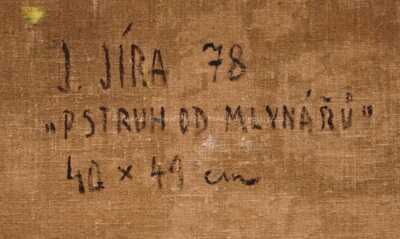 J. JÍRA 78
„PSTRUH OD MLYNÁŘŮ"
40 × 49 cm